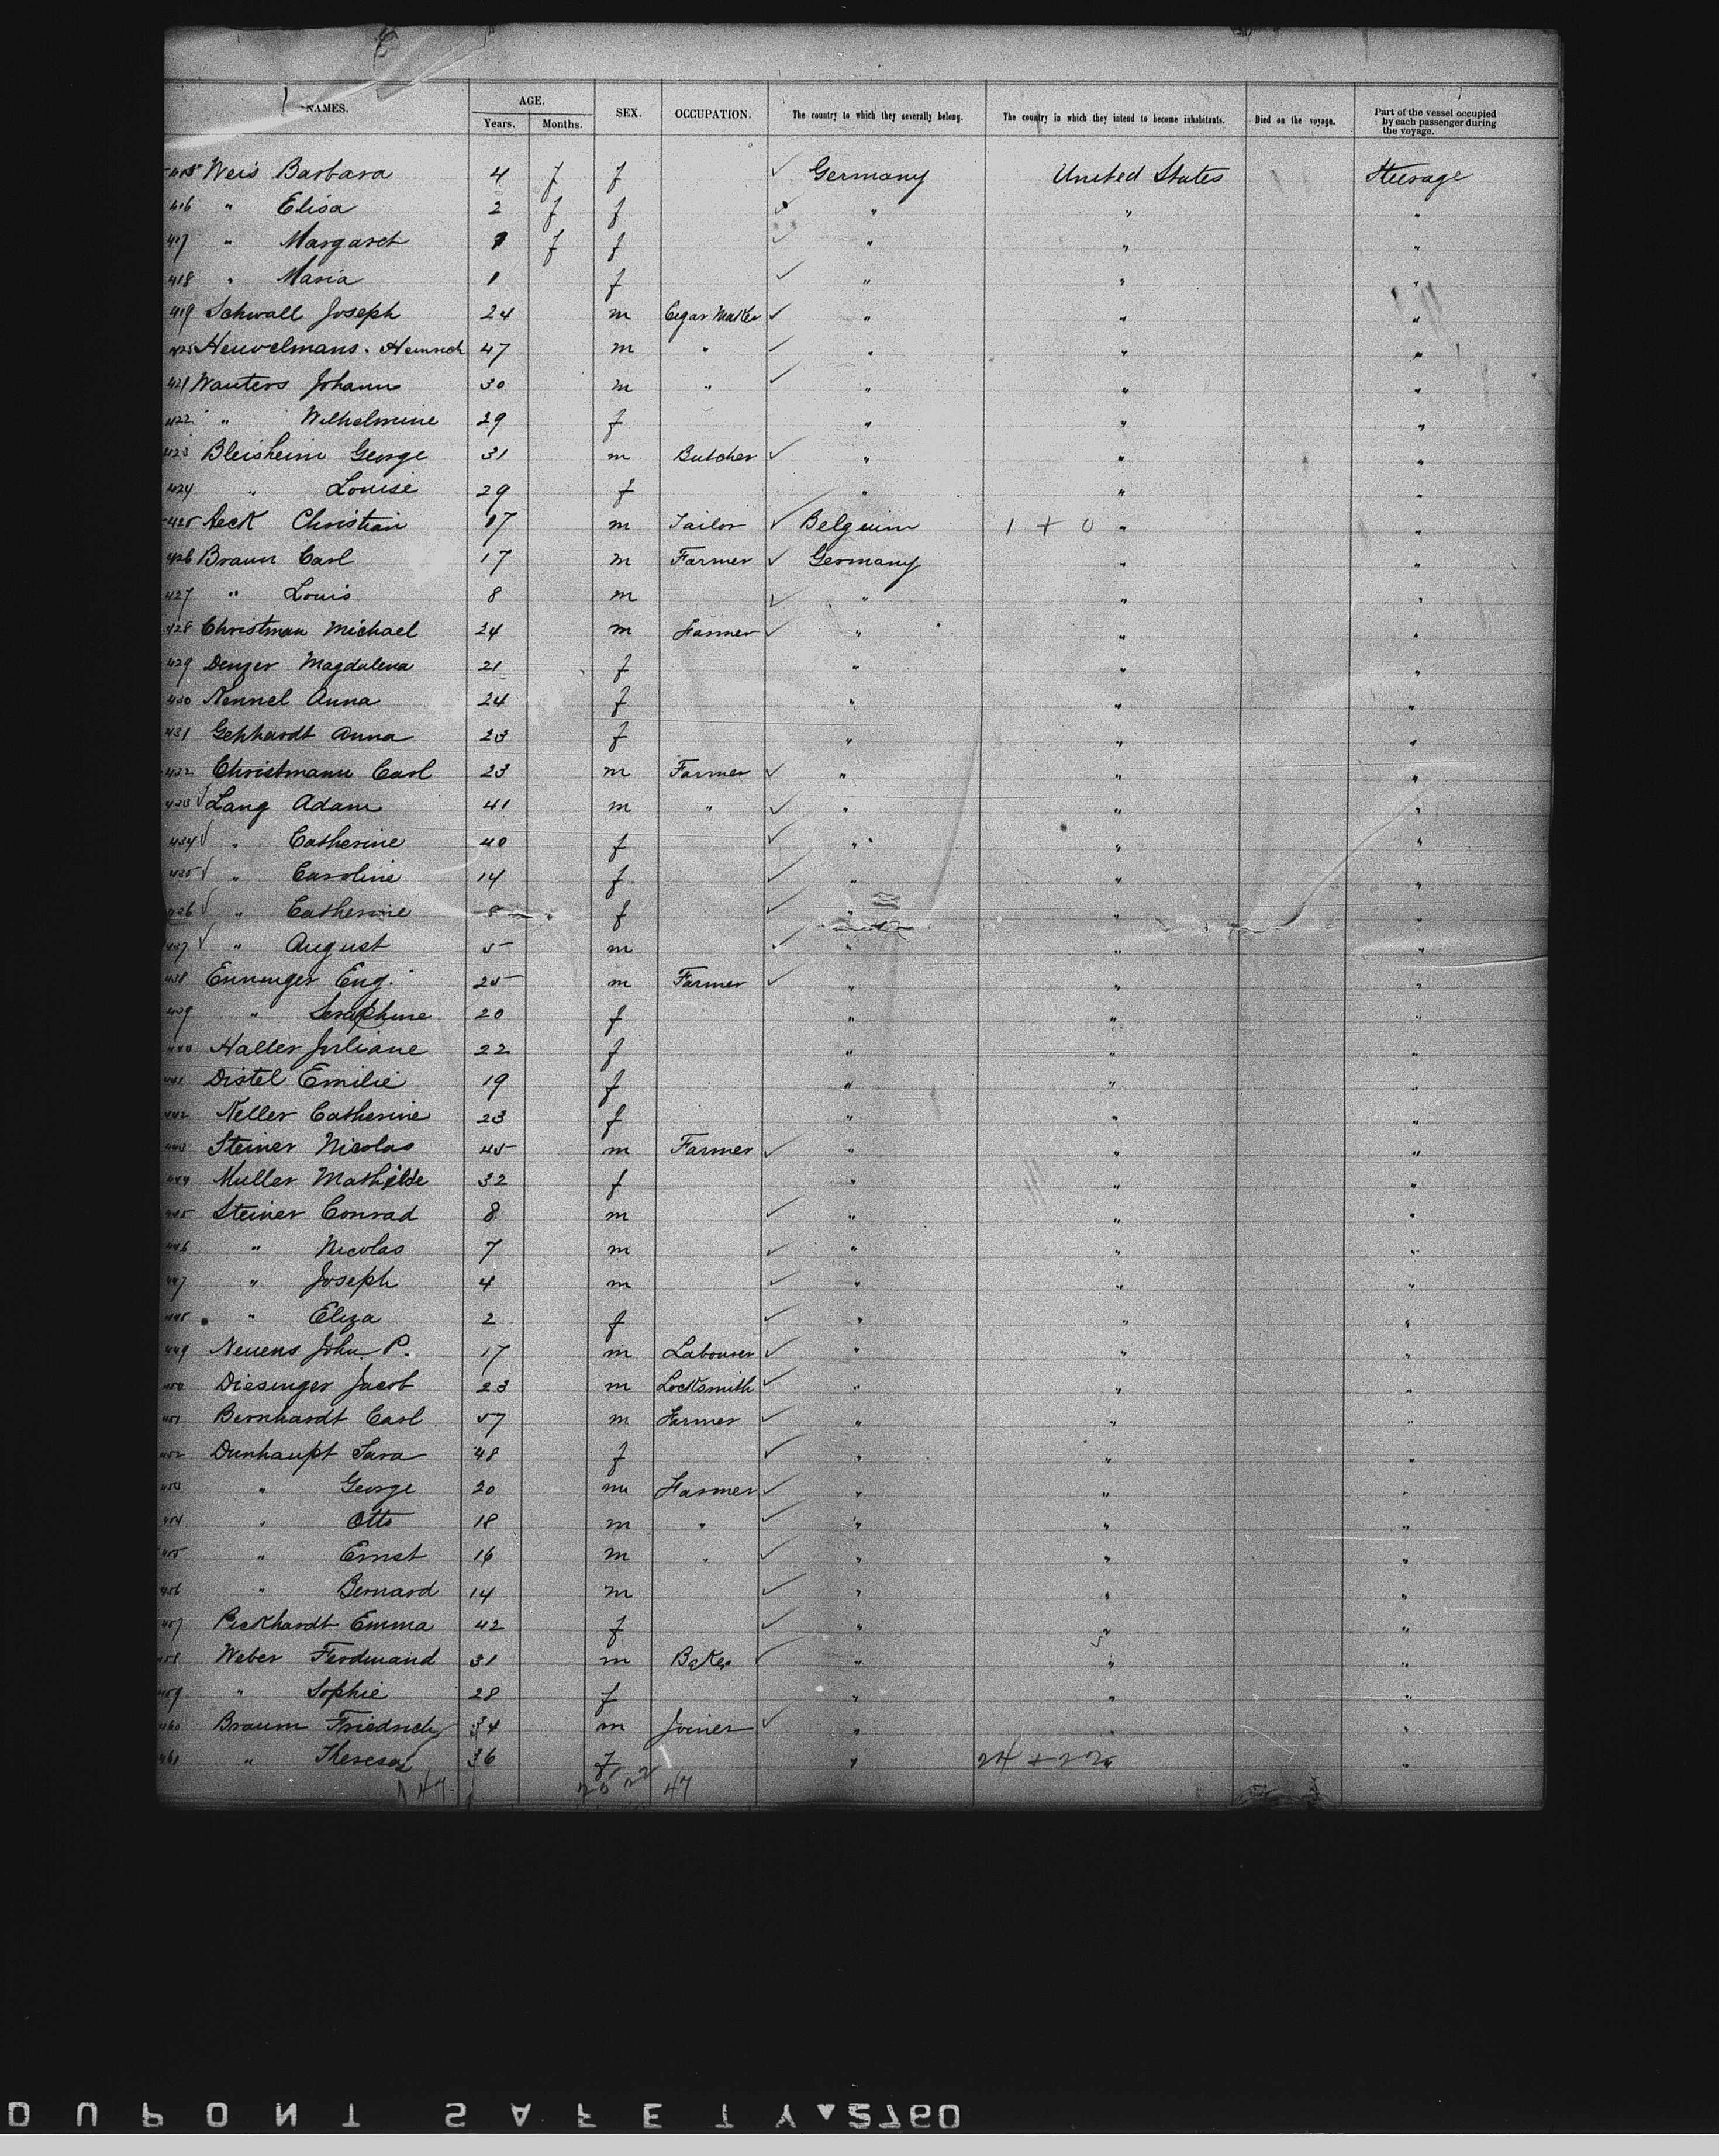 NAMES. AGE. Years. Months. SEX. OCCUPATION. The country to which they severally belong. The country in which they intend to become inhabitants. Died on the voyage. Part of the vessel occupied by each passenger during the voyage.
415 Weis Barbara 4 f f ✓ Germany United States Steerage
416 " Elisa 2 f f ✓ " " "
417 " Margaret f f ✓ " " "
418 " Maria 1 f ✓ " " "
419 Schwall Joseph 24 m Cigar Maker ✓ " " "
Heuvelmans Heinrich 47 m " ✓ " " "
421 Wauters Johann 30 m " ✓ " " "
422 " Wilhelmine 29 f " " "
423 Bleisheim George 31 m Butcher ✓ " " "
424 " Louise 29 f " " "
425 Aeck Christian 17 m Tailor ✓ Belguim 1 + 0 " "
426 Braun Carl 17 m Farmer ✓ Germany " "
427 " Louis 8 m ✓ " " "
428 Christman Michael 24 m Farmer ✓ " " "
429 Denzer Magdalena 21 f " " "
430 Nennel Anna 24 f " " "
431 Gebhardt Anna 23 f " " "
432 Christmann Carl 23 m Farmer ✓ " " "
433 ✓ Lang Adam 41 m " ✓ " " "
434 ✓ " Catherine 40 f ✓ " " "
435 ✓ " Caroline 14 f ✓ " " "
436 ✓ " Catherine 8 f ✓ " " "
437 ✓ " August 5 m ✓ " " "
438 Enninger Eug. 25 m Farmer ✓ " " "
439 " Seraphine 20 f " " "
440 Haller Juliane 22 f " " "
441 Distel Emilie 19 f " " "
442 Neller Catherine 23 f " " "
443 Steiner Nicolas 45 m Farmer ✓ " " "
444 Muller Mathilde 32 f " " "
445 Steiner Conrad 8 m ✓ " " "
446 " Nicolas 7 m ✓ " " "
447 " Joseph 4 m ✓ " " "
448 " Eliza 2 f ✓ " " "
449 Neuens John P. 17 m Labourer ✓ " " "
450 Diesinger Jacob 23 m Locksmith ✓ " " "
451 Bernhardt Carl 57 m Farmer ✓ " " "
452 Dunhaupt Sara 48 f ✓ " " "
453 " George 20 m Farmer ✓ " " "
454 " Otto 18 m " ✓ " " "
455 " Ernst 16 m " ✓ " " "
456 " Bernard 14 m ✓ " " "
457 Pickhardt Emma 42 f ✓ " " "
458 Weber Ferdinand 31 m Baker ✓ " " "
459 " Sophie 28 f " " "
460 Braum Friedrich 34 m Joiner ✓ " " "
461 " Theresa 36 f " 24 + 22 " "
47 25 22 47
DUPONT SAFETY 2760